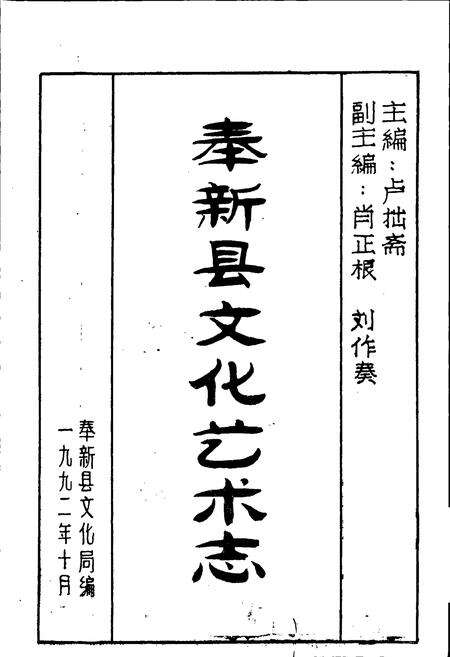 主编：卢拙斋
副主编：肖正根 刘作奏
奉新县文化艺术志
奉新县文化局编
一九九二年十月